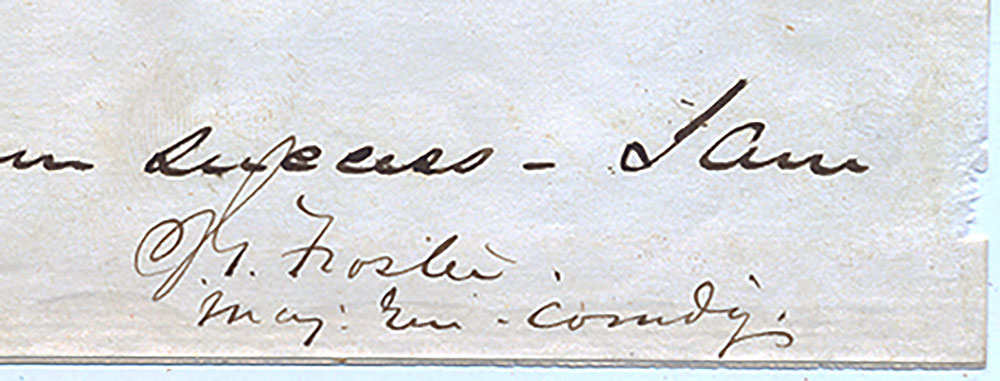 success - I am
J. G. Foster.
Maj. Gen. Comdg.